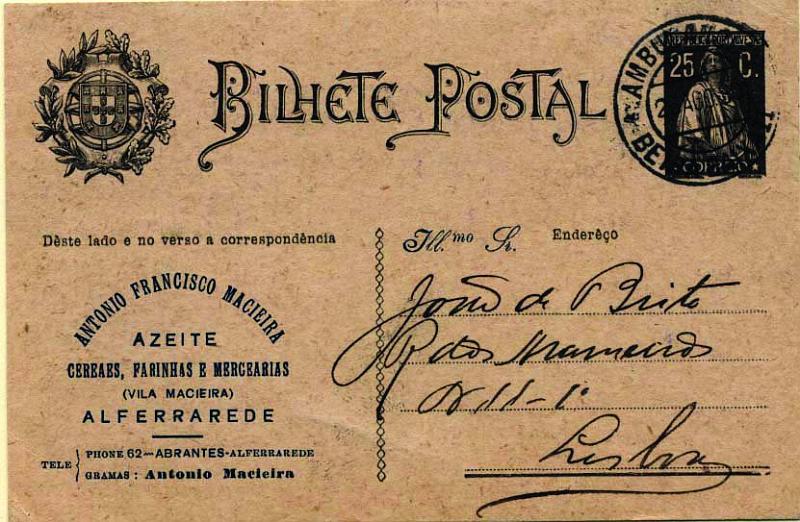 BILHETE POSTAL
REPUBLICA PORTUGUESA
25 C.
CORREIO
AMBULANCIA
Dêste lado e no verso a correspondência
Ill.mo Sr. Enderêço
ANTONIO FRANCISCO MACIEIRA
AZEITE
CEREAES, FARINHAS E MERCEARIAS
(VILA MACIEIRA)
ALFERRAREDE
TELE
PHONE 62-ABRANTES-ALFERRAREDE
GRAMAS: Antonio Macieira
João de Brito
R. dos
N 11-1º
Lisboa